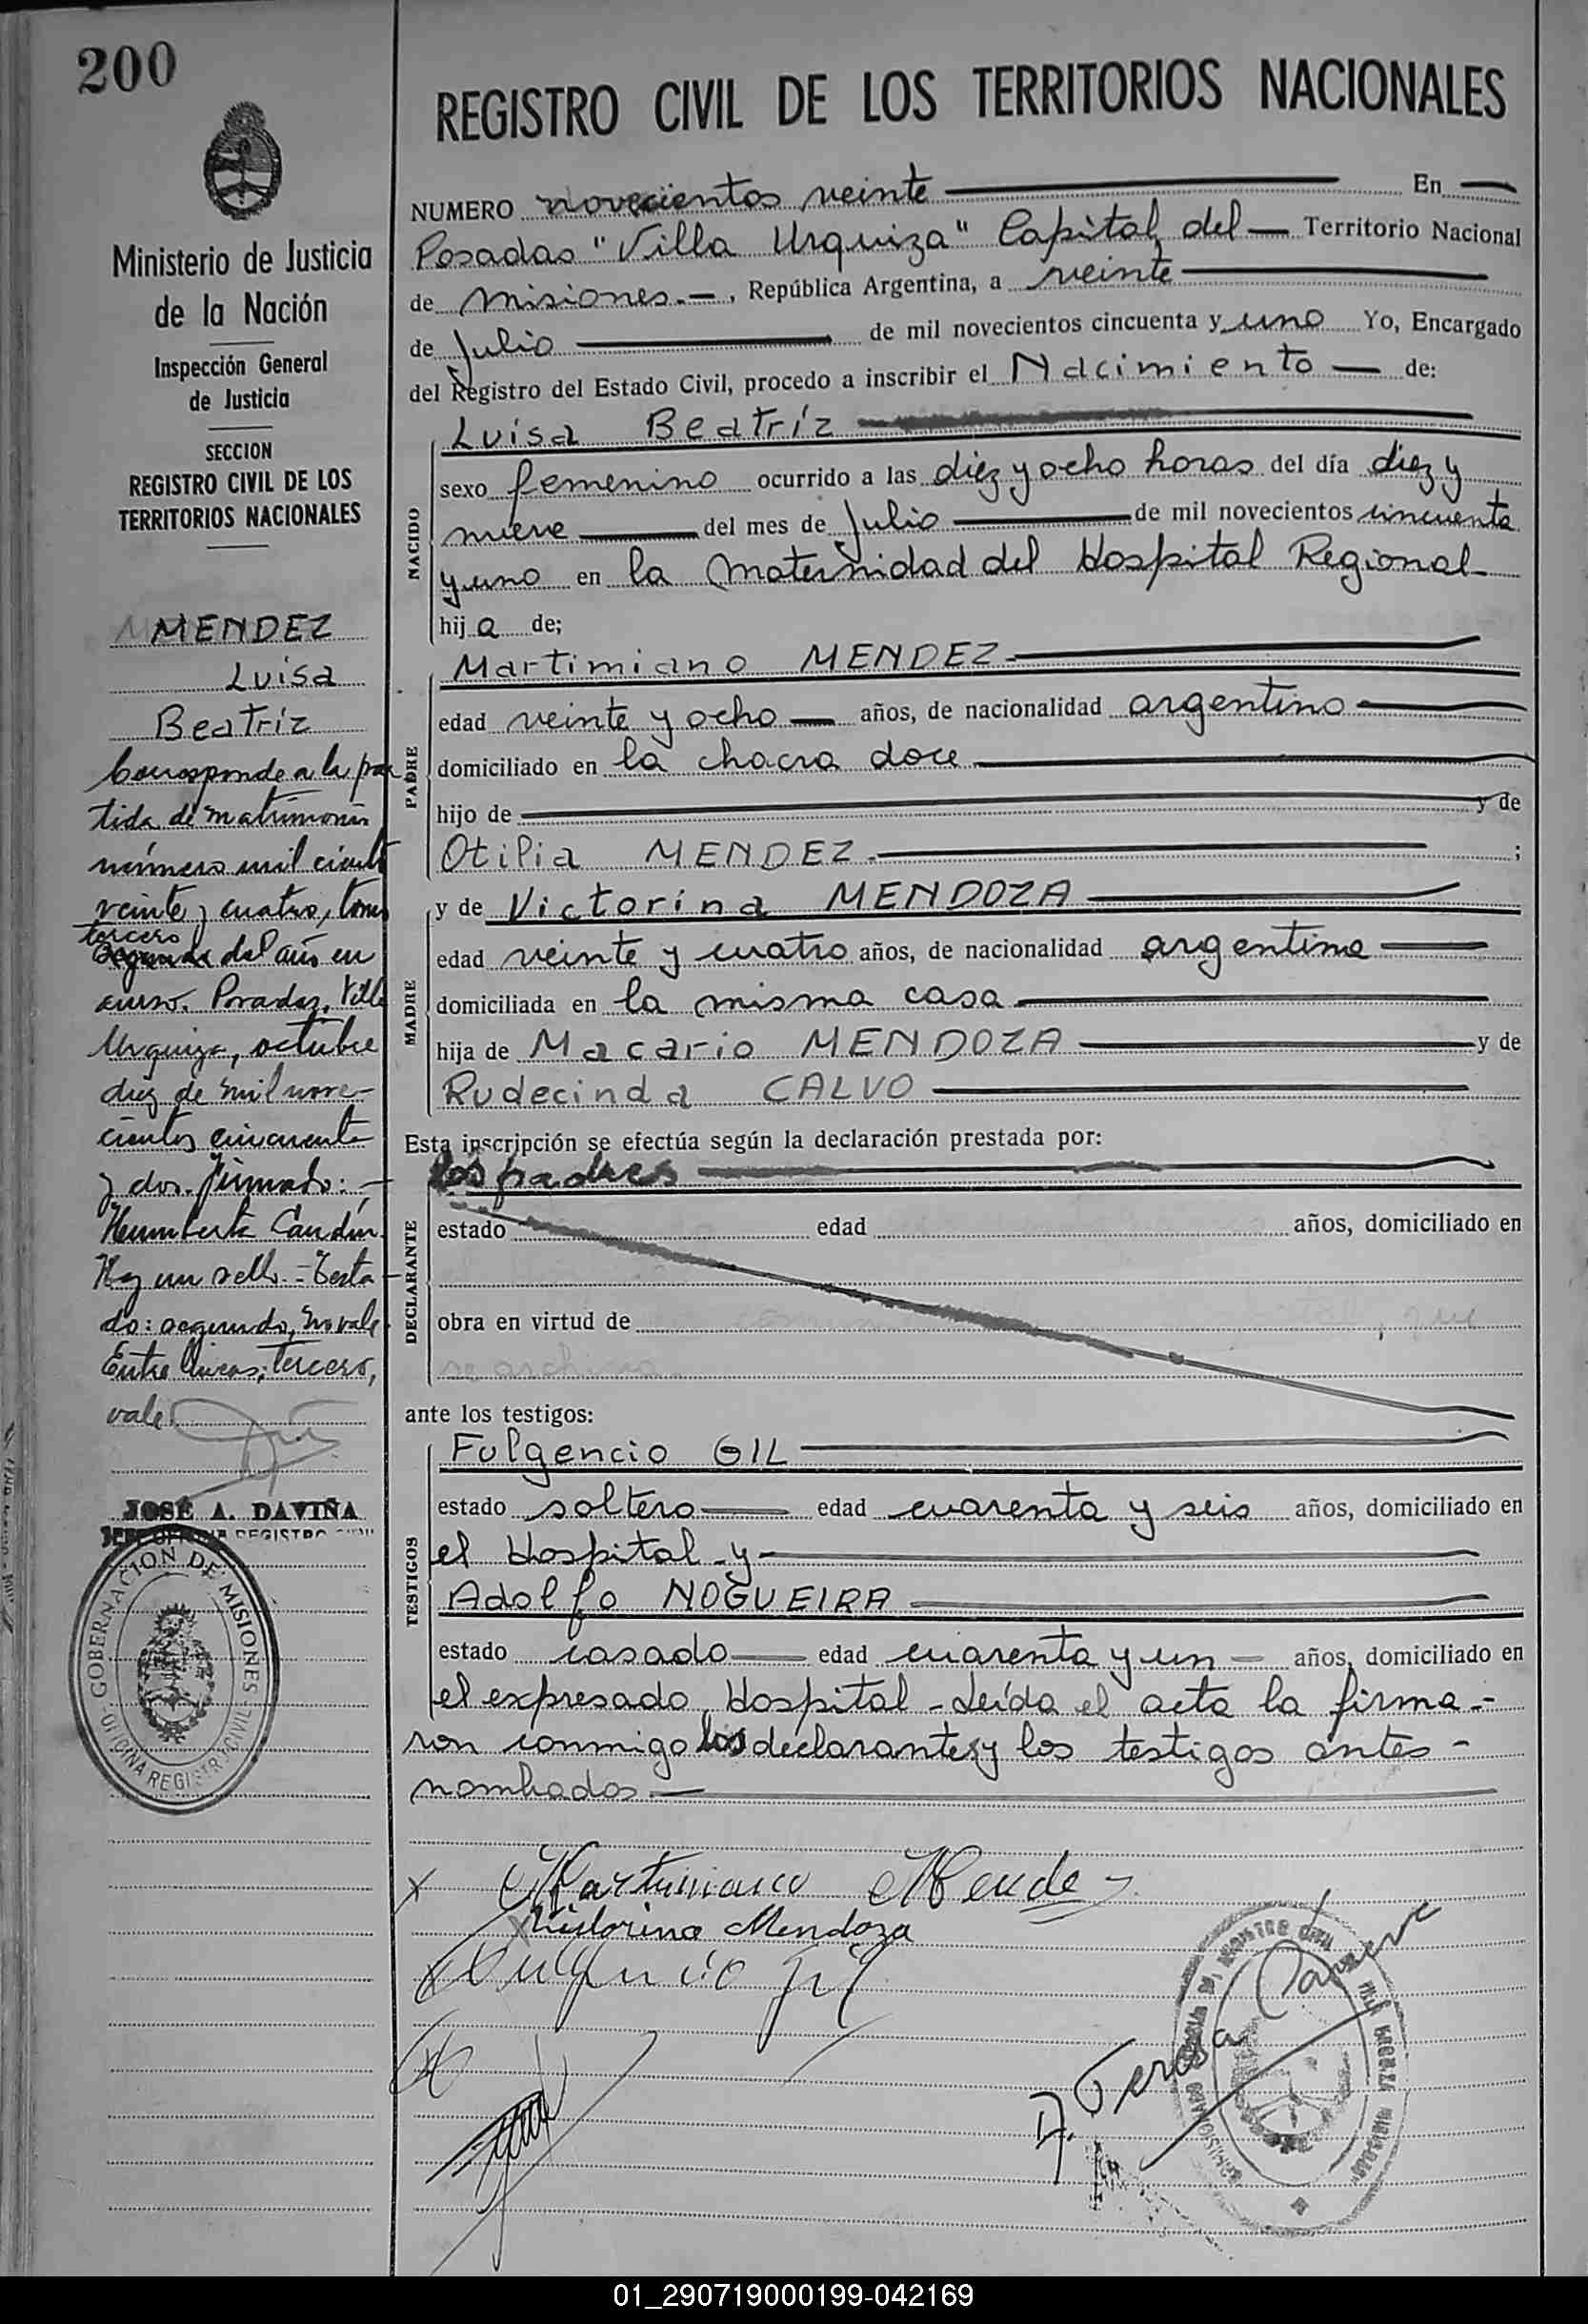 200
REGISTRO CIVIL DE LOS TERRITORIOS NACIONALES
Ministerio de Justicia
de la Nación
Inspección General
de Justicia
SECCION
REGISTRO CIVIL DE LOS
TERRITORIOS NACIONALES
MENDEZ
Luisa
Beatríz
Corresponde a la par
tida de matrimonio
número mil ciento
veinte y cuatro, tomo
tercero
segundo del año en
curso. Posadas, Villa
Urquiza, octubre
diez de mil nove-
cientos cincuenta
y dos. Firmado: -
Humberto Candia
Hay un sello. - Testa
do: segundo, no vale
Entre líneas: tercero,
vale.
JOSÉ A. DAVIÑA
JEFE OFICINA REGISTRO CIVIL
GOBERNACION DE MISIONES
OFICINA REGISTRO CIVIL
NUMERO novecientos veinte En
Posadas "Villa Urquiza" Capital del Territorio Nacional
de Misiones.-, República Argentina, a veinte
de Julio de mil novecientos cincuenta y uno Yo, Encargado
del Registro del Estado Civil, procedo a inscribir el Nacimiento de:
NACIDO
Luisa Beatríz
sexo femenino ocurrido a las diez y ocho horas del día diez y
nueve del mes de Julio de mil novecientos cincuenta
y uno en la Maternidad del Hospital Regional
hija de;
PADRE
Martimiano MENDEZ.
edad veinte y ocho años, de nacionalidad argentino
domiciliado en la chacra doce
hijo de y de
Otilia MENDEZ. ;
MADRE
y de Victorina MENDOZA
edad veinte y cuatro años, de nacionalidad argentina
domiciliada en la misma casa
hija de Macario MENDOZA y de
Rudecinda CALVO
Esta inscripción se efectúa según la declaración prestada por:
DECLARANTE
los padres
estado edad años, domiciliado en
obra en virtud de , que
se archiva.
ante los testigos:
TESTIGOS
Fulgencio GIL
estado soltero edad cuarenta y seis años, domiciliado en
el Hospital - y -
Adolfo NOGUEIRA
estado casado edad cuarenta y un años, domiciliado en
el expresado Hospital - Leída el acta la firma-
ron conmigo los declarantes y los testigos antes-
nombrados.
x Martimiano Mendez
x Victorina Mendoza
x Fulgencio Gil
x
01_290719000199-042169